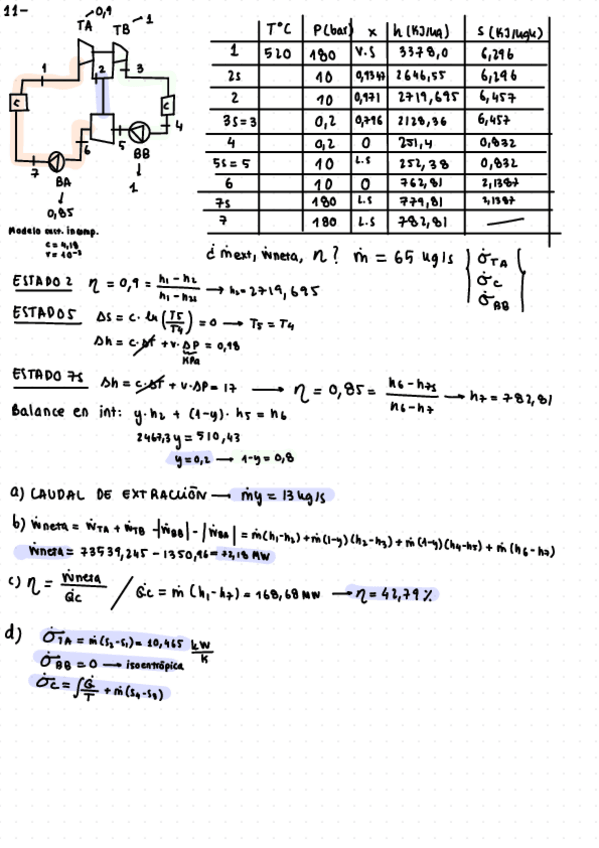 11-
TA 0,9
TB 1
1
2
3
C
C
4
5
BB
6
7
BA
1
0,85
Modelo sust. incomp.
c = 4,18
v = 10⁻³
T°C P(bar) x h(KJ/kg) s(KJ/kgK)
1 520 180 V.S 3378,0 6,296
2s 10 0,9347 2646,55 6,296
2 10 0,971 2719,695 6,457
3s=3 0,2 0,796 2128,36 6,457
4 0,2 0 251,4 0,832
5s=5 10 L.S 252,38 0,832
6 10 0 762,81 2,1387
7s 180 L.S 779,81 2,1387
7 180 L.S 782,81 —
¿ṁext, ẇneta, η? ṁ = 65 kg/s
σ̇TA
σ̇C
σ̇BB
ESTADO 2 η = 0,9 = (h1-h2)/(h1-h2s) → h2 = 2719,695
ESTADO 5 Δs = c·ln(T5/T4) = 0 → T5 = T4
Δh = c·ΔT + v·ΔP = 0,98
KPa
ESTADO 7s Δh = c·ΔT + v·ΔP = 17 → η = 0,85 = (h6-h7s)/(h6-h7) → h7 = 782,81
Balance en int: y·h2 + (1-y)·h5 = h6
2467,3y = 510,43
y = 0,2 → 1-y = 0,8
a) CAUDAL DE EXTRACCIÓN → ṁy = 13 kg/s
b) Ẇneta = ẆTA + ẆTB - |ẆBB| - |ẆBA| = ṁ(h1-h2) + ṁ(1-y)(h2-h3) + ṁ(1-y)(h4-h5) + ṁ(h6-h7)
Ẇneta = 73539,245 - 1350,96 = 72,18 MW
c) η = Ẇneta/Q̇c / Q̇c = ṁ(h1-h7) = 168,68 MW → η = 42,79 %
d) σ̇TA = ṁ(s2-s1) = 10,465 kW/K
σ̇BB = 0 → isoentrópica
σ̇C = ∫Q̇/T + ṁ(s4-s3)